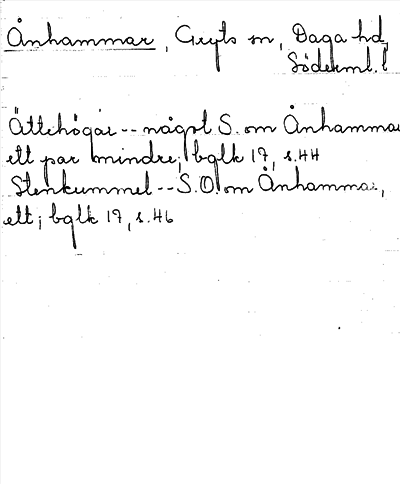 Ånhammar, Gryts sn, Daga hd,
Söderml. l
Ättehögar -- något S. om Ånhammar
ett par mindre; bglk 17, s.44
Stenkummel -- S.O. om Ånhammar,
ett; bglk 17, s.46